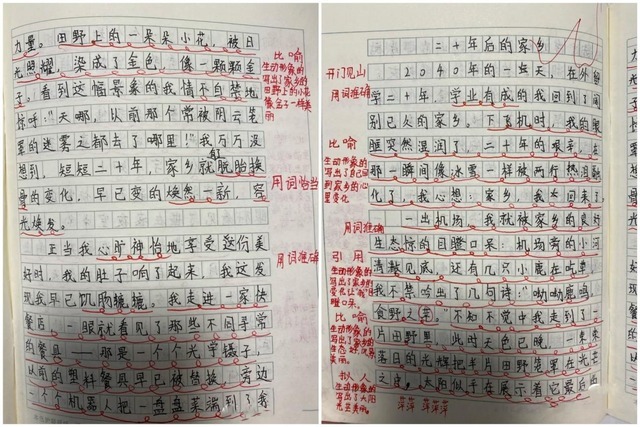 力量。田野上的一朵朵小花，被日
光照耀，染成了金色，像一颗颗金
子。看到这幅景象的我情不自禁地
惊呼："天哪，以前那个常被阴云笼
罩的迷雾之都去了哪里！"我万万没
想到，短短二十年，家乡就脱胎换
骨的变化，早已变的焕然一新，容
光焕发。
正当我心旷神怡地享受这份美
好时，我的肚子响了起来，我这发
现我早已饥肠辘辘。我走进一家快
餐店，一眼就看见了那些不同寻常
的餐具，那是一个个光学镊子，
以前的塑料餐具早已被替换，旁边
一个个机器人把一盘盘菜端到了我
比喻
生动形象的
写出了家乡的
田野上的小花
像金子一样美
丽
用词恰当
用词准确
二十年后的家乡
2040年的一天，在外留
学二十年，学业有成的我回到了阔
别已久的家乡。下飞机时，我的眼
眶突然湿润了，二十年的艰辛，在
那一瞬间像冰雪一样被两行热泪融
化了，我心想：家乡，我回来了
一出机场，我就被家乡的良好
生态惊的目瞪口呆：机场旁的小河
清澈见底，还有几只小鹿在吃草，
我不禁吟出了几句诗："呦呦鹿鸣，
食野之苹。"不知不觉中我走到了一
片田野里，此时天色已晚，一束束
落日的光辉把半片田野笼罩在光芒
之中。太阳似乎在展示着它最后的
开门见山
用词准确
比喻
生动形象的
写出了自己回
到家乡的心
里变化
用词准确
引用
生动形象的
写出了家乡的
变化让"我"目
瞪口呆。
比喻
生动形象的
写出了家乡的
生态好，优美
美丽。
拟人
生动形象的
写出了太阳
光芒美丽。
萍萍 萍萍萍